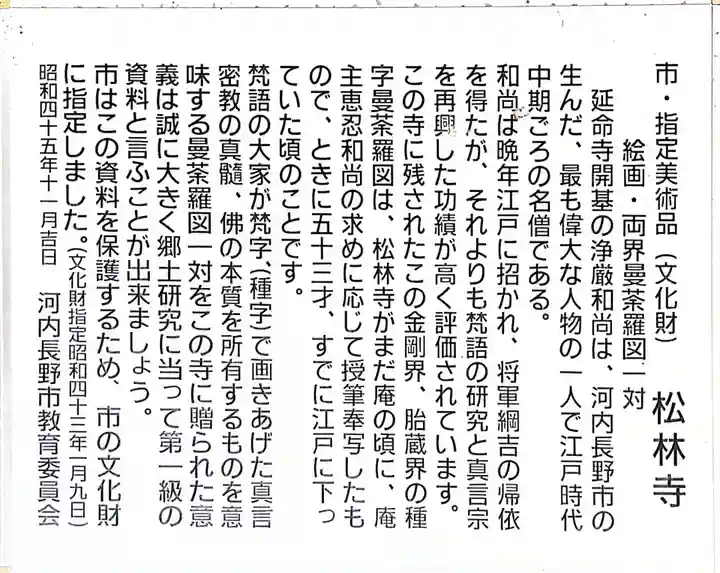 市・指定美術品（文化財）　松林寺
絵画・両界曼荼羅図一対
延命寺開基の浄厳和尚は、河内長野市の
生んだ、最も偉大な人物の一人で江戸時代
中期ごろの名僧である。
和尚は晩年江戸に招かれ、将軍綱吉の帰依
を得たが、それよりも梵語の研究と真言宗
を再興した功績が高く評価されています。
この寺に残されたこの金剛界、胎蔵界の種
字曼荼羅図は、松林寺がまだ庵の頃に、庵
主恵忍和尚の求めに応じて授筆奉写したも
ので、ときに五十三才，すでに江戸に下っ
ていた頃のことです。
梵語の大家が梵字、（種字）で画きあげた真言
密教の真髄、佛の本質を所有するものを意
味する曼荼羅図一対をこの寺に贈られた意
義は誠に大きく郷土研究に当って第一級の
資料と言ふことが出来ましょう。
市はこの資料を保護するため、市の文化財
に指定しました。（文化財指定昭和四十三年一月九日）
昭和四十五年十一月吉日　河内長野市教育委員会